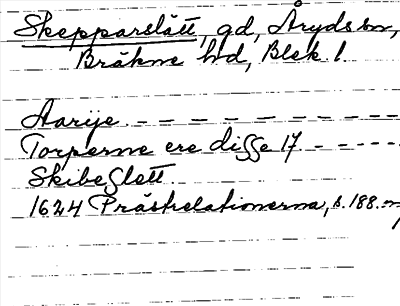 Skepparslätt, gd, Åryds sn,
Bräkne hd, Blek. l.
Aarije - - - - - - - - -
Torperne ere disse 17 - - - - -
Skibeslett.
1624 Prästrelationerna, s. 188.